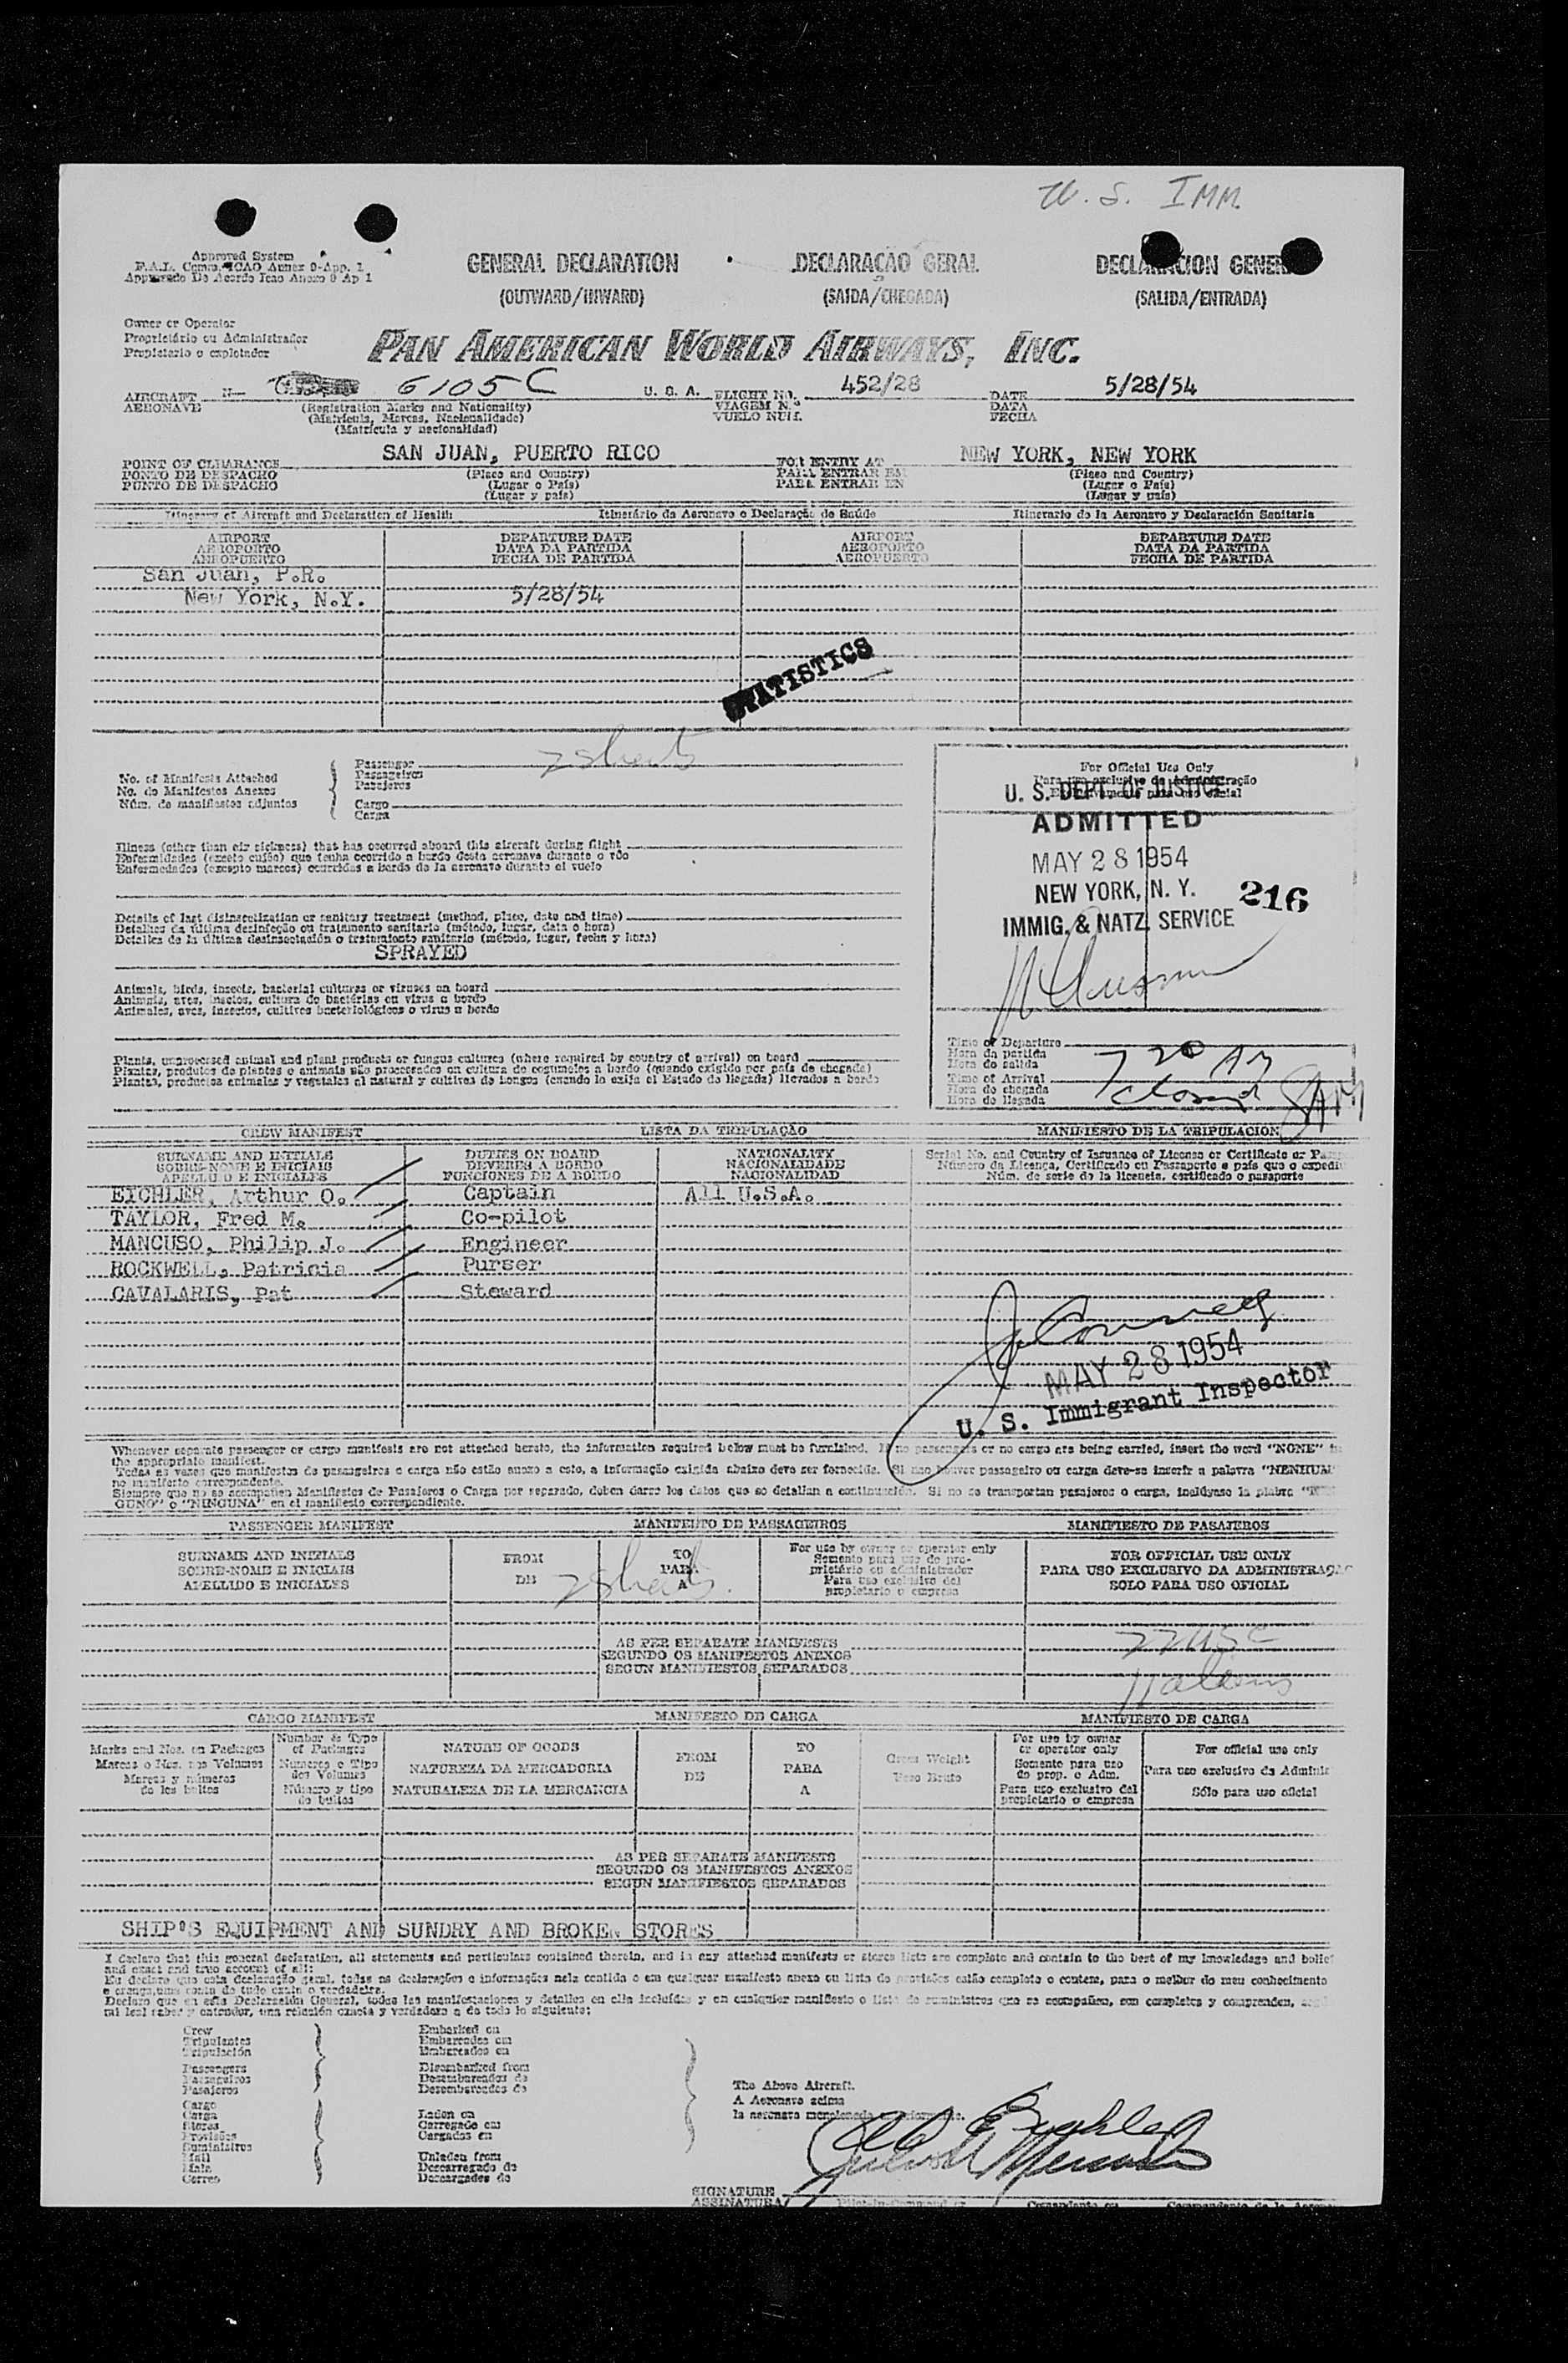 U. S. IMM.
Approved System
F.A.L. Comm. ICAO Annex 9-App. 1
Approvado De Acordo Icao Anexo 9 Ap 1
GENERAL DECLARATION
(OUTWARD/INWARD)
DECLARAÇÃO GERAL
(SAIDA/CHEGADA)
DECLARACION GENERAL
(SALIDA/ENTRADA)
Owner or Operator
Proprietário ou Administrador
Propietario o explotador
PAN AMERICAN WORLD AIRWAYS, INC.
AIRCRAFT N— 6105C U. S. A. FLIGHT NO. 452/28 DATE 5/28/54
AERONAVE VIAGEM N.º DATA
VUELO NUM. FECHA
(Registration Marks and Nationality)
(Matrícula, Marcas, Nacionalidade)
(Matrícula y nacionalidad)
POINT OF CLEARANCE SAN JUAN, PUERTO RICO FOR ENTRY AT NEW YORK, NEW YORK
PONTO DE DESPACHO (Place and Country) PARA ENTRAR EM (Place and Country)
PUNTO DE DESPACHO (Lugar o País) PARA ENTRAR EN (Lugar o País)
(Lugar y país) (Lugar y país)
Itinerary of Aircraft and Declaration of Health Itinerário da Aeronave e Declaração de Saúde Itinerario de la Aeronave y Declaración Sanitaria
AIRPORT DEPARTURE DATE AIRPORT DEPARTURE DATE
AEROPORTO DATA DA PARTIDA AEROPORTO DATA DA PARTIDA
AEROPUERTO FECHA DE PARTIDA AEROPUERTO FECHA DE PARTIDA
San Juan, P.R.
New York, N.Y. 5/28/54
STATISTICS
No. of Manifests Attached
No. de Manifestos Anexos
Núm. de manifiestos adjuntos
Passenger 2 sheets
Passageiros
Pasajeros
Cargo
Carga
For Official Use Only
U. S. DEPT. OF JUSTICE
ADMITTED
MAY 28 1954
NEW YORK, N. Y. 216
IMMIG. & NATZ. SERVICE
Illness (other than air sickness) that has occurred aboard this aircraft during flight
Enfermidades (exceto enjôo) que tenha ocorrido a bordo desta aeronave durante o vôo
Enfermedades (excepto mareos) ocurridas a bordo de la aeronave durante el vuelo
Details of last disinsectization or sanitary treatment (method, place, date and time)
Detalhes da última desinfeção ou tratamento sanitario (método, lugar, data o hora)
Detalles de la última desinsectación o tratamiento sanitario (método, lugar, fecha y hora)
SPRAYED
Animals, birds, insects, bacterial cultures or viruses on board
Animais, aves, insetos, cultura de bactérias ou virus a bordo
Animales, aves, insectos, cultivos bacteriológicos o virus a bordo
Plants, unprocessed animal and plant products or fungus cultures (where required by country of arrival) on board
Plantas, produtos de plantas e animais não processados ou cultura de cogumelos a bordo (quando exigido por país de chegada)
Plantas, productos animales y vegetales al natural y cultivos de hongos (cuando lo exija el Estado de llegada) llevados a bordo
Time of Departure
Hora da partida
Hora de salida
Time of Arrival
Hora de chegada
Hora de llegada
7 20 AM
CREW MANIFEST LISTA DA TRIPULAÇÃO MANIFIESTO DE LA TRIPULACION
SURNAME AND INITIALS DUTIES ON BOARD NATIONALITY Serial No. and Country of Issuance of License or Certificate or
SOBRE-NOME E INICIAIS DEVERES A BORDO NACIONALIDADE Número da Licença, Certificado ou Passaporte e país que o
APELLIDO E INICIALES FUNCIONES DE A BORDO NACIONALIDAD Núm. de serie de la licencia, certificado o pasaporte
EICHLER, Arthur O. Captain All U.S.A.
TAYLOR, Fred M. Co-pilot
MANCUSO, Philip J. Engineer
ROCKWELL, Patricia Purser
CAVALARIS, Pat Steward
MAY 28 1954
U. S. Immigrant Inspector
Whenever separate passenger or cargo manifests are not attached hereto, the information required below must be furnished. If no passengers or no cargo are being carried, insert the word "NONE" in
the appropriate manifest.
Todas as vezes que manifestos de passageiros e carga não estão anexo a este, a informação exigida abaixo deve ser fornecida. Si não houver passageiro ou carga deve-se inserir a palavra "NENHUM"
no manifesto correspondente.
Siempre que no se acompañen Manifiestos de Pasajeros o Carga por separado, deben darse los datos que se detallan a continuación. Si no se transportan pasajeros o carga, inclúyase la plabra
GUNO" o "NINGUNA" en el manifiesto correspondiente.
PASSENGER MANIFEST MANIFESTO DE PASSAGEIROS MANIFIESTO DE PASAJEROS
SURNAME AND INITIALS
SOBRE-NOME E INICIAIS
APELLIDO E INICIALES
FROM
DE
TO
PARA
A
2 sheets.
For use by owner or operator only
Somente para uso de pro-
prietário ou administrador
Para uso exclusivo del
propietario o empresa
FOR OFFICIAL USE ONLY
PARA USO EXCLUSIVO DA ADMINISTRAÇÃO
SOLO PARA USO OFICIAL
AS PER SEPARATE MANIFESTS
SEGUNDO OS MANIFESTOS ANEXOS
SEGUN MANIFIESTOS SEPARADOS
CARGO MANIFEST MANIFESTO DE CARGA MANIFIESTO DE CARGA
Marks and Nos. on Packages
Marcas o Nos. nos Volumes
Marcas y números
de los bultos
Number & Type
of Packages
Numeros e Tipo
dos Volumes
Número y tipo
de bultos
NATURE OF GOODS
NATUREZA DA MERCADORIA
NATURALEZA DE LA MERCANCIA
FROM
DE
TO
PARA
A
Gross Weight
Peso Bruto
For use by owner
or operator only
Somente para uso
do prop. e Adm.
Para uso exclusivo del
propietario o empresa
For official use only
Para uso exclusivo da
Sólo para uso oficial
AS PER SEPARATE MANIFESTS
SEGUNDO OS MANIFESTOS ANEXOS
SEGUN MANIFIESTOS SEPARADOS
SHIP'S EQUIPMENT AND SUNDRY AND BROKEN STORES
I declare that this general declaration, all statements and particulars contained therein, and in any attached manifests or stores lists are complete and contain to the best of my knowledge and belief
and exact and true account of all:
Declaro que en esta Declaración General, todas las manifestaciones y detalles en ella incluídas y en cualquier manifiesto o lista de suministros que se acompañen, son completos y comprenden,
mi leal saber y entender, una relación exacta y verdadera a de todo lo siguiente:
Crew
Tripulantes
Tripulación
Passengers
Passageiros
Pasajeros
Cargo
Carga
Stores
Provisões
Suministros
Mail
Mala
Correo
Embarked on
Embarcados em
Embarcados en
Disembarked from
Desembarcados de
Desembarcados de
Laden on
Carregado em
Cargados en
Unladen from
Descarregado de
Descargados de
The Above Aircraft.
A Aeronave acima
la aeronave
SIGNATURE
ASSINATURA